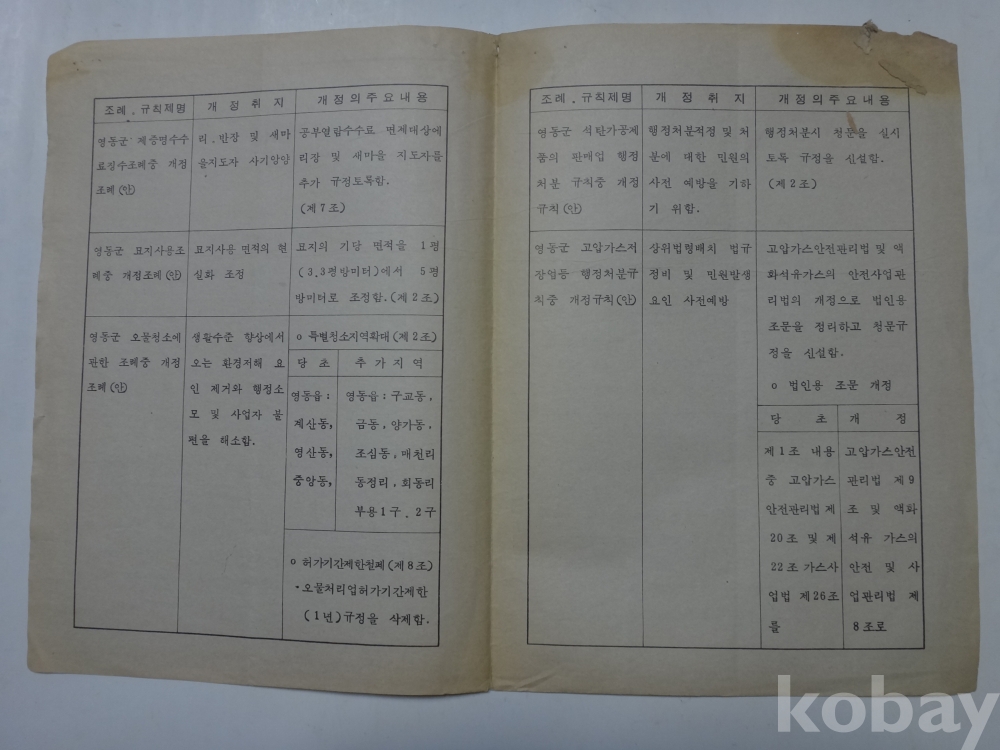 조례．규칙제명 개 정 취 지 개정의주요내용
영동군 제증명수수
료징수조례중 개정
조례(안)
리．반장 및 새마
을지도자 사기앙양
공부열람수수료 면제대상에
리장 및 새마을 지도자를
추가 규정토록함.
(제7조)
영동군 묘지사용조
례중 개정조례(안)
묘지사용 면적의 현
실화 조정
묘지의 기당 면적을 1평
(3.3평방미터)에서 5평
방미터로 조정함.(제2조)
영동군 오물청소에
관한 조례중 개정
조례(안)
생활수준 향상에서
오는 환경저해 요
인 제거와 행정소
모 및 사업자 불
편을 해소함.
o 특별청소지역확대(제2조)
당 초 추 가 지 역
영동읍:
계산동,
영산동,
중앙동,
영동읍:구교동,
금동,양가동,
조심동,매천리
동정리,회동리
부용1구．2구
o 허가기간제한철폐(제8조)
·오물처리업허가기간제한
(1년)규정을 삭제함.
조례．규칙제명 개 정 취 지 개정의주요내용
영동군 석탄가공제
품의 판매업 행정
처분 규칙중 개정
규칙(안)
행정처분적정 및 처
분에 대한 민원의
사전 예방을 기하
기 위함.
행정처분시 청문을 실시
토록 규정을 신설함.
(제2조)
영동군 고압가스저
장업등 행정처분규
칙중 개정규칙(안)
상위법령배치 법규
정비 및 민원발생
요인 사전예방
고압가스안전관리법 및 액
화석유가스의 안전사업관
리법의 개정으로 법인용
조문을 정리하고 청문규
정을 신설함.
o 법인용 조문 개정
당 초 개 정
제1조 내용
중 고압가스
안전관리법제
20조 및 제
22조 가스사
업법 제26조
를
고압가스안전
관리법 제9
조 및 액화
석유 가스의
안전 및 사
업관리법 제
8조로
kobay